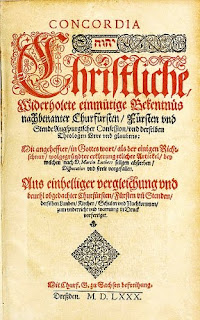 CONCORDIA
יהוה
Christliche,
Widerholete einmütige Bekentnüs
nachbenanter Churfürsten / Fürsten vnd
Stende Augspurgischer Confession / vnd derselben
Theologen Lere vnd glaubens:
Mit angeheffter / in Gottes wort / als der einigen Richt-
schnur / wolgegründter erklerung etlicher Artickel / bey
welchen nach D. Martin Luthers seligen absterben /
Disputation vnd streit vorgefallen.
Aus einhelliger vergleichung vnd
beuehl obgedachter Churfürsten / Fürsten vnd Stenden /
derselben Landen / Kirchen / Schulen vnd Nachkommen /
zum vnterricht vnd warnung in Druck
vorfertiget.
Mit Churf. G. zu Sachsen befreihung.
Dreßden. M. D. LXXX.